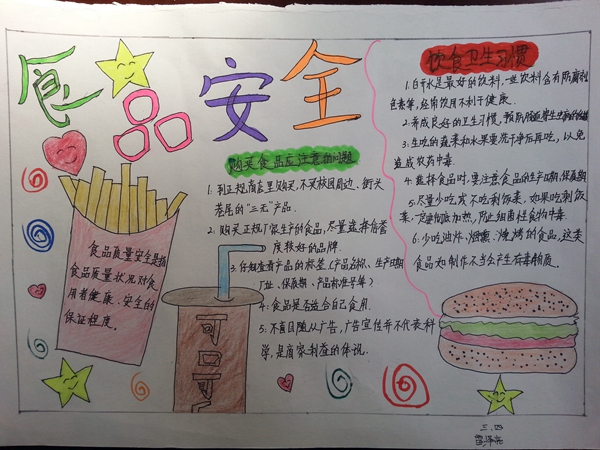 食品安全
购买食品应注意的问题
1. 到正规商店里购买,不买校园周边、街头
巷尾的“三无”产品.
2. 购买正规厂家生产的食品,尽量选择信誉
度较好的品牌.
3. 仔细查看产品的标签(产品名称、生产日期
厂址、保质期、产品标准号等)
4. 食品是否适合自己食用.
5. 不盲目随从广告,广告宣传并不代表科
学,是商家利益的体现.
食品质量安全是指
食品质量状况对食
用者健康、安全的
保证程度。
可口可
饮食卫生习惯
1. 白开水是最好的饮料,一些饮料含有防腐剂
色素等,经常饮用不利于健康.
2. 养成良好的卫生习惯,
3. 生吃的蔬菜和水果要洗干净后再吃,以免
造成农药中毒.
4. 选择食品时,要注意食品的生产日期、保质期
5. 尽量少吃或不吃剩饭菜,如果吃剩饭
菜,一定要彻底加热,防止细菌性食物中毒.
6. 少吃油炸、烟熏、烧烤的食品,这类
食品如制作不当会产生有毒物质。
三.